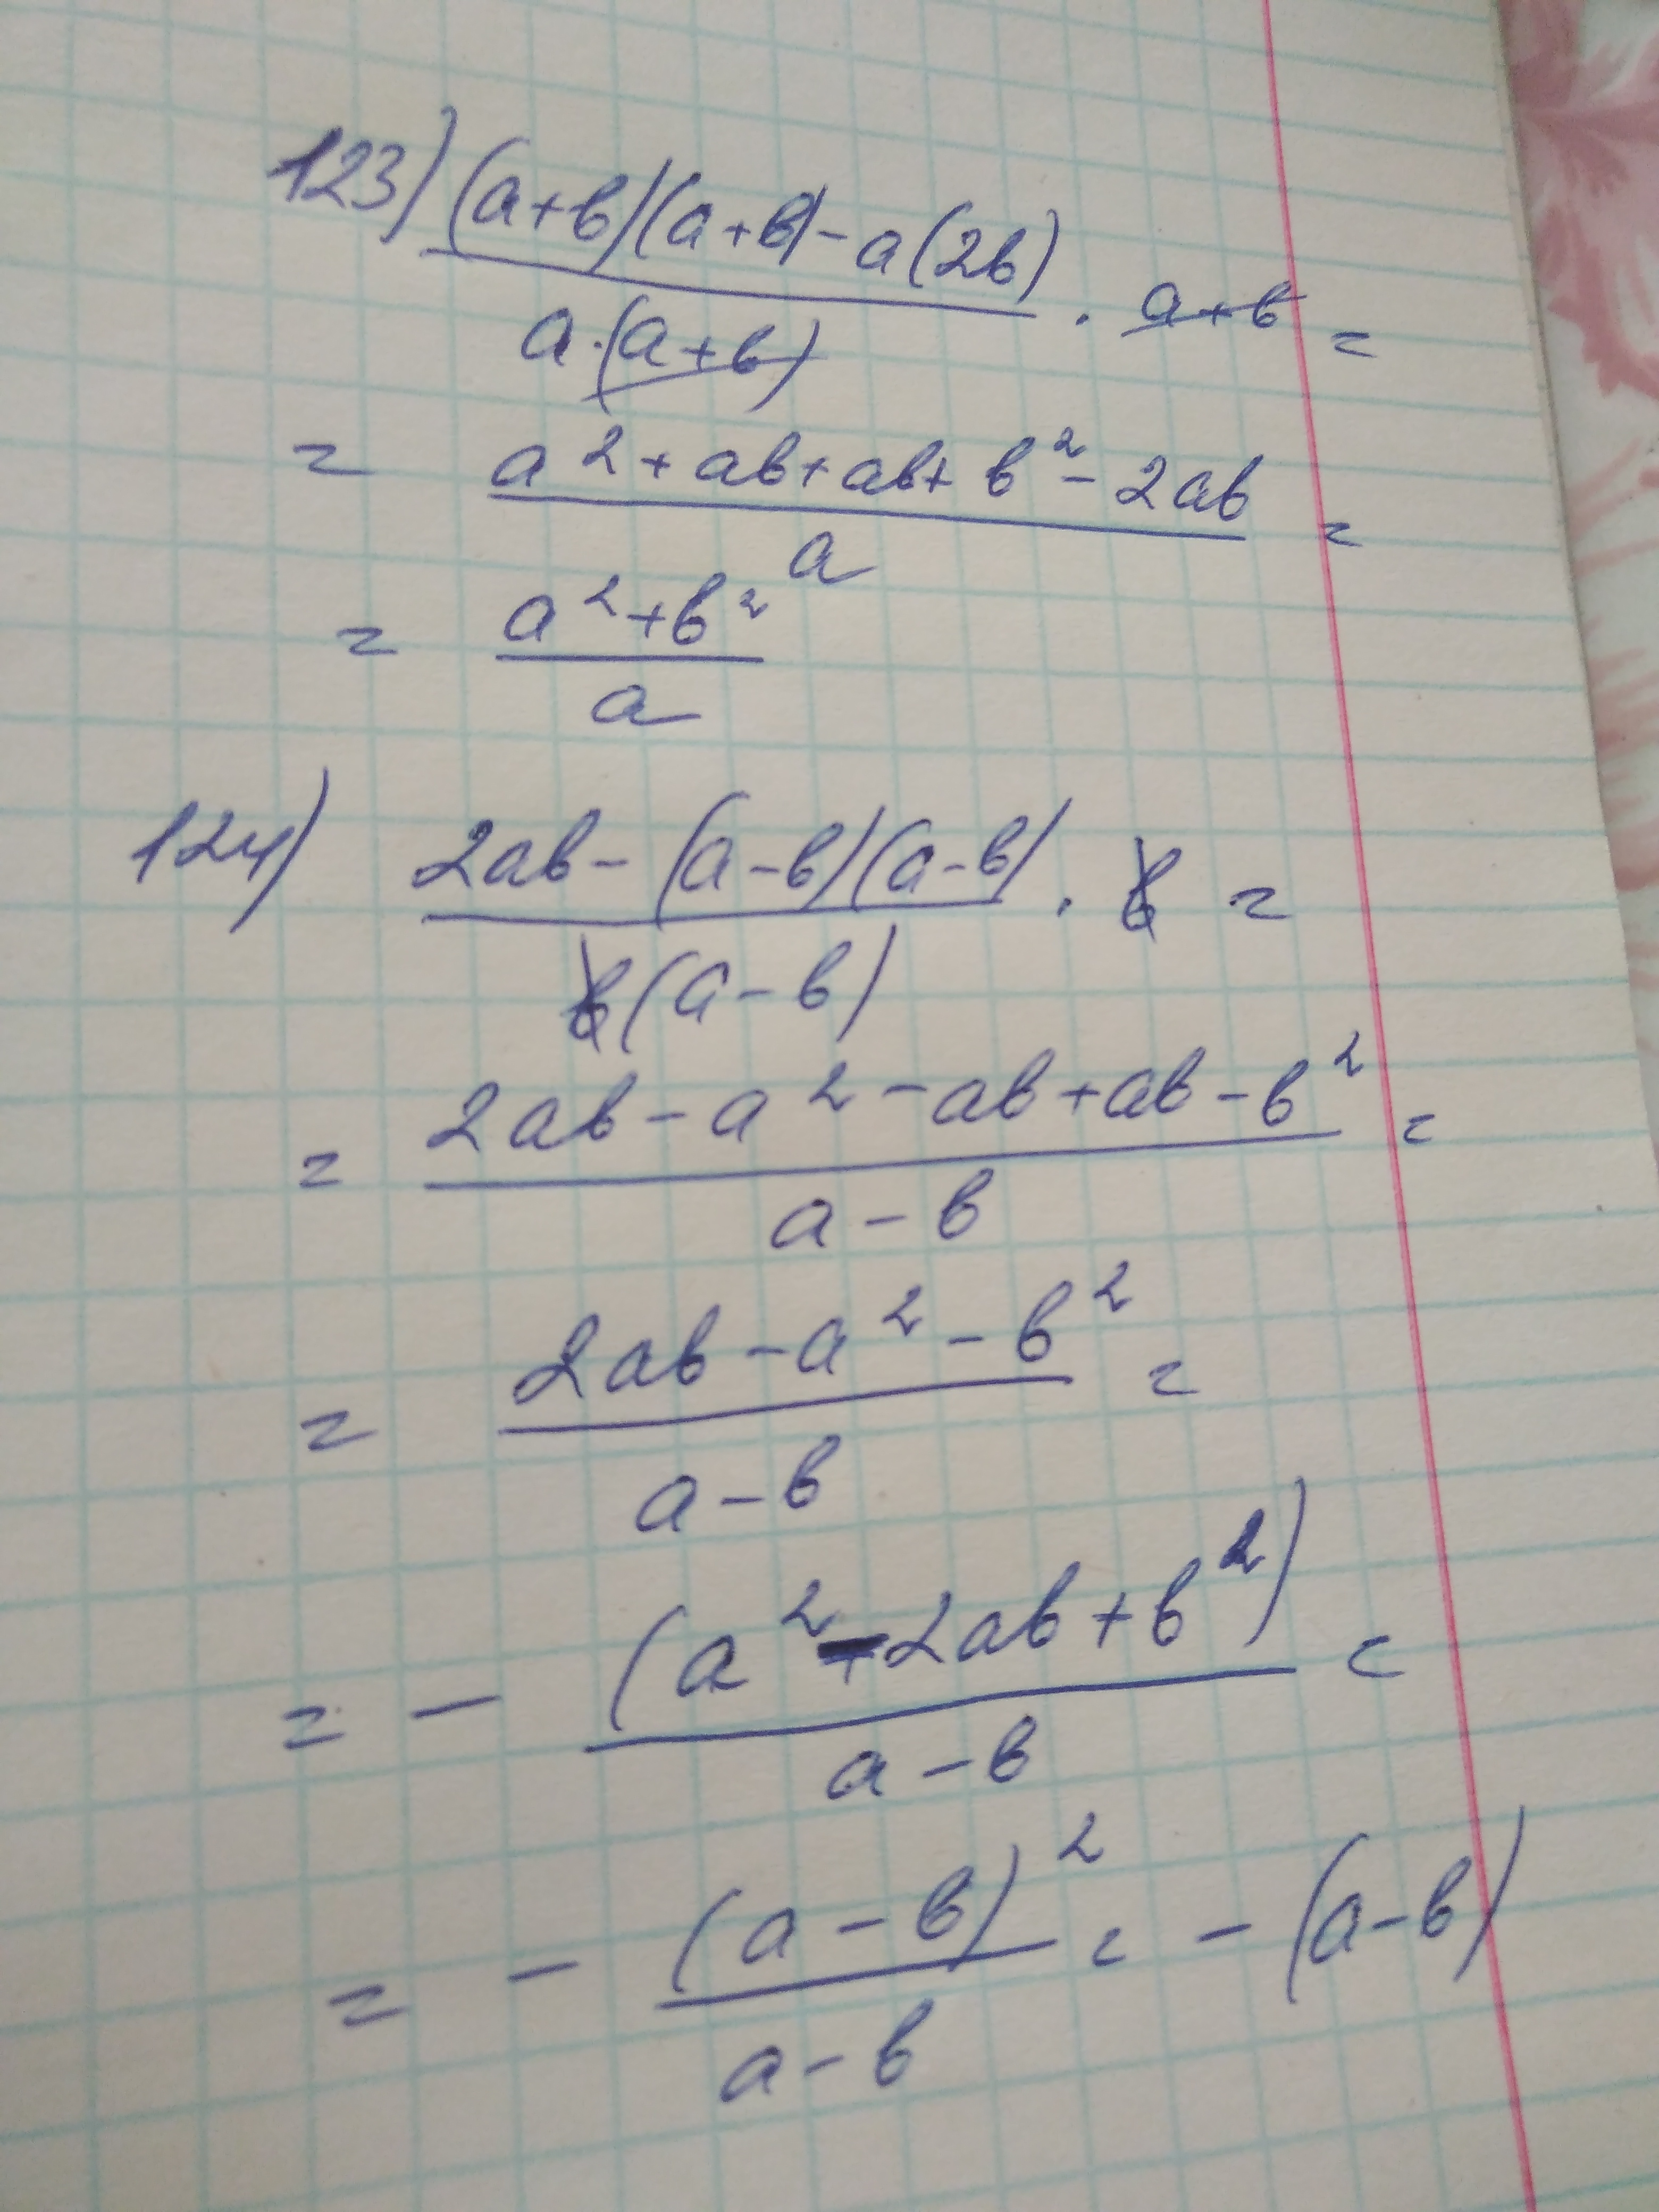 123) (a+b)(a+b)-a(2b) / a·(a+b) · a+b =
= a²+ab+ab+b²-2ab / a =
= a²+b² / a
124) 2ab-(a-b)(a-b) / b(a-b) · b =
= 2ab-a²-ab+ab-b² / a-b =
= 2ab-a²-b² / a-b =
= - (a²-2ab+b²) / a-b =
= - (a-b)² / a-b = -(a-b)